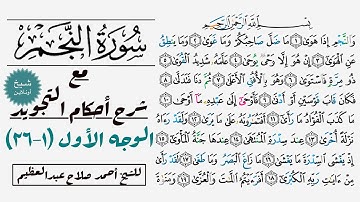 سُورَةُ النَّجْمِ
مع
شرح أحكام التجويد
الوجه الأول (١-٢٦)
للشيخ أحمد صلاح عبدالعظيم
بِسْمِ اللَّهِ الرَّحْمَٰنِ الرَّحِيمِ
وَالنَّجْمِ إِذَا هَوَىٰ ١ مَا ضَلَّ صَاحِبُكُمْ وَمَا غَوَىٰ ٢ وَمَا يَنطِقُ
عَنِ الْهَوَىٰ ٣ إِنْ هُوَ إِلَّا وَحْيٌ يُوحَىٰ ٤ عَلَّمَهُ شَدِيدُ الْقُوَىٰ ٥
ذُو مِرَّةٍ فَاسْتَوَىٰ ٦ وَهُوَ بِالْأُفُقِ الْأَعْلَىٰ ٧ ثُمَّ دَنَا فَتَدَلَّىٰ ٨
فَكَانَ قَابَ قَوْسَيْنِ أَوْ أَدْنَىٰ ٩ فَأَوْحَىٰ إِلَىٰ عَبْدِهِ مَا أَوْحَىٰ ١٠
مَا كَذَبَ الْفُؤَادُ مَا رَأَىٰ ١١ أَفَتُمَارُونَهُ عَلَىٰ مَا يَرَىٰ ١٢ وَلَقَدْ رَآهُ
نَزْلَةً أُخْرَىٰ ١٣ عِندَ سِدْرَةِ الْمُنتَهَىٰ ١٤ عِندَهَا جَنَّةُ الْمَأْوَىٰ ١٥
إِذْ يَغْشَى السِّدْرَةَ مَا يَغْشَىٰ ١٦ مَا زَاغَ الْبَصَرُ وَمَا طَغَىٰ ١٧ لَقَدْ رَأَىٰ
مِنْ آيَاتِ رَبِّهِ الْكُبْرَىٰ ١٨ أَفَرَأَيْتُمُ اللَّاتَ وَالْعُزَّىٰ ١٩ وَمَنَاةَ